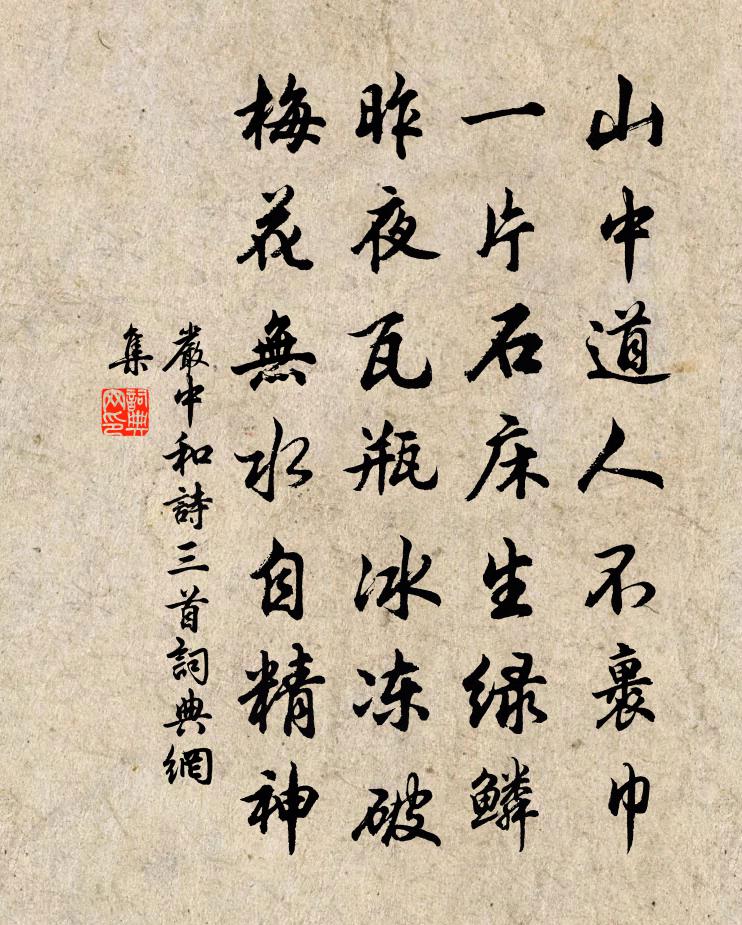 山中道人不裹巾
一片石床生绿鳞
昨夜瓦瓶冰冻破
梅花無水自精神
嚴中和詩三首詞典網
集
詞典网印